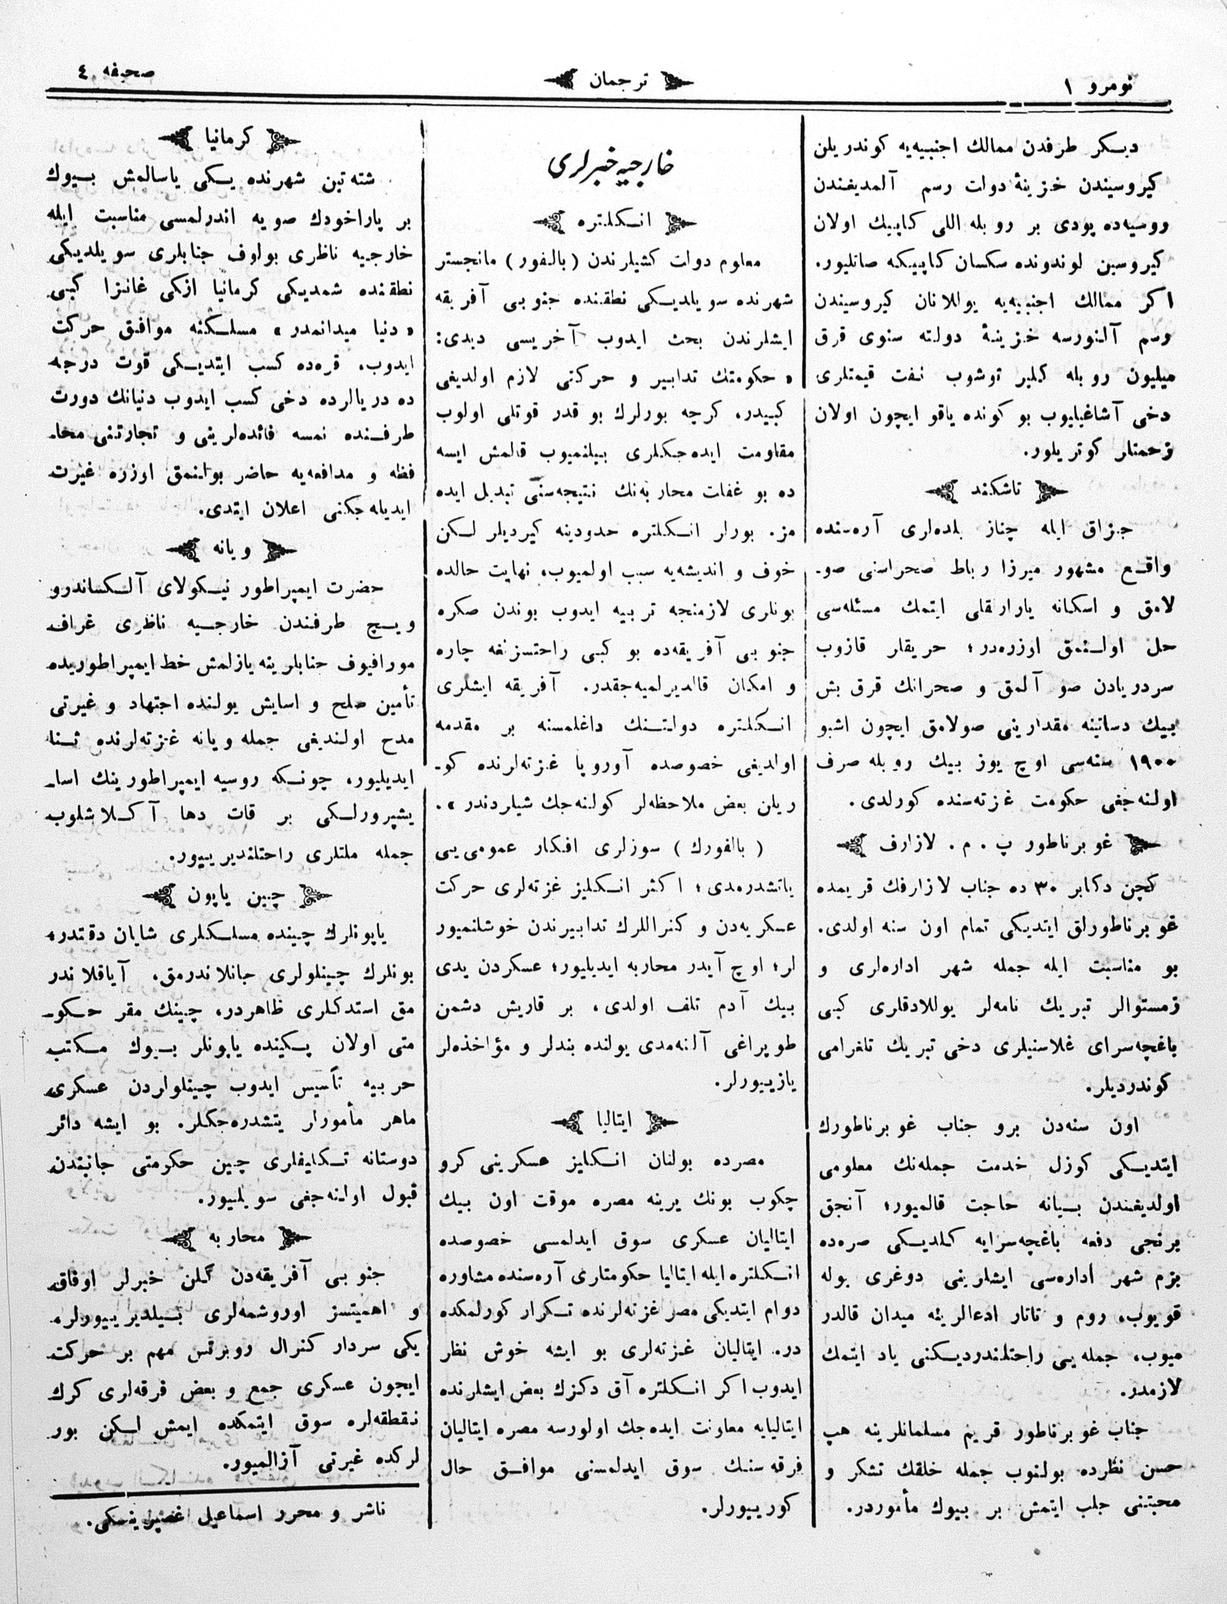 نومرو ١
ترجمان
صحیفه ٤
دیکر طرفدن ممالك اجنبیه‌یه کوندریلن
کیروسیندن خزینهٔ دولت رسم آلمدیغندن
روسیه‌ده پودی بر روبله اللی کاپیك اولان
کیروسین لوندونده سکسان کاپیکه صانلیور.
اکر ممالك اجنبیه‌یه یوللانان کیروسیندن
رسم آلنورسه خزینهٔ دولته سنوی قرق
میلیون روبله کلیر توشوب نفت قیمتلری
دخی آشاغیلیوب بو کونده یاقو ایچون اولان
زحمتلر کوتریلور.
تاشکند
جزاق ایله چناز بلده‌لری آره‌سنده
واقع مشهور میرزا رباط صحراسنی صو-
لامق و اسکانه یارارقلی ایتمك مسئله‌سی
حل اولنمق اوزره‌در؛ حریقلر قازوب
سردریادن صو آلمق و صحرانك قرق بش
بیك دساتینه مقدارینی صولامق ایچون اشبو
١٩٠٠ سنه‌سی اوچ یوز بیك روبله صرف
اولنه‌جغی حکومت غزته‌سنده کورلدی.
غوبرناطور پ. م. لازارف
کچن دکابر ٣٠ ده جناب لازارفك قریمده
غوبرناطورلق ایتدیکی تمام اون سنه اولدی.
بو مناسبت ایله جمله شهر اداره‌لری و
زمستوالر تبریك نامه‌لر یوللادقلری کبی
باغچه‌سرای غلاسنیلری دخی تبریك تلغرامی
کوندردیلر.
اون سنه‌دن برو جناب غوبرناطورك
ایتدیکی کوزل خدمت جمله‌نك معلومی
اولدیغندن بیانه حاجت قالمیور؛ آنجق
برنجی دفعه باغچه‌سرایه کلدیکی صره‌ده
بزم شهر اداره‌سی ایشلرینی دوغری یوله
قویوب، روم و تاتار ادعالرینه میدان قالدر
میوب، جمله‌یی راحتلندردیکنی یاد ایتمك
لازمدر.
جناب غوبرناطور قریم مسلمانلرینه هپ
حسن نظرده بولنوب جمله خلقك تشکر و
محبتنی جلب ایتمش بر بیوك مأموردر.
خارجیه خبرلری
انکلتره
معلوم دولت کشیلرندن (بالفور) مانچستر
شهرنده سویلدیکی نطقنده جنوبی آفریقه
ایشلرندن بحث ایدوب آخریسی دیدی:
« حکومتك تدابیر و حرکتی لازم اولدیغی
کبیدر، کرچه بورلرك بو قدر قوتلی اولوب
مقاومت ایده‌جکلری بیلنمیوب قالمش ایسه
ده بو غفلت محاربه‌نك نتیجه‌سنی تبدیل ایده
مز. بورلر انکلتره حدودینه کیردیلر لکن
خوف و اندیشه‌یه سبب اولمیوب، نهایت حالده
بونلری لازمنجه تربیه ایدوب بوندن صکره
جنوبی آفریقه‌ده بو کبی راحتسزلغه چاره
و امکان قالدیرلمیه‌جقدر. آفریقه ایشلری
انکلتره دولتنك داغلمسنه بر مقدمه
اولدیغی خصوصده آوروپا غزته‌لرنده کو-
ریلن بعض ملاحظه‌لر کولنه‌جك شیلردندر ».
(بالفورك) سوزلری افکار عمومی‌یی
یاتشدره‌مدی؛ اکثر انکلیز غزته‌لری حرکت
عسکریه‌دن و کنراللرك تدابیرندن خوشلنمیور
لر؛ اوچ آیدر محاربه ایدیلیور؛ عسکردن یدی
بیك آدم تلف اولدی، بر قاریش دشمن
طوپراغی آلنه‌مدی یولنده بندلر و مؤاخذه‌لر
یازییورلر.
ایتالیا
مصرده بولنان انکلیز عسکرینی کرو
چکوب بونك یرینه مصره موقت اون بیك
ایتالیان عسکری سوق ایدلمسی خصوصده
انکلتره ایله ایتالیا حکومتلری آره‌سنده مشاوره
دوام ایتدیکی مصر غزته‌لرنده تکرار کورلمکده
در. ایتالیان غزته‌لری بو ایشه خوش نظر
ایدوب اکر انکلتره آق دکزك بعض ایشلرنده
ایتالیایه معاونت ایده‌جك اولورسه مصره ایتالیان
فرقه‌سنك سوق ایدلمسنی موافق حال
کورییورلر.
کرمانیا
شته‌تین شهرنده یکی یاسالمش بیوك
بر پاراخودك صویه اندرلمسی مناسبت ایله
خارجیه ناظری بولوف جنابلری سویلدیکی
نطقنده شمدیکی کرمانیا ازکی غانزا کبی
« دنیا میدانمدر » مسلکنه موافق حرکت
ایدوب، قره‌ده کسب ایتدیکی قوت درجه
ده دریالرده دخی کسب ایدوب دنیانك دورت
طرفنده نمسه فائده‌لرینی و تجارتنی محا-
فظه و مدافعه‌یه حاضر بولنمق اوزره غیرت
ایدیله‌جکنی اعلان ایتدی.
ویانه
حضرت ایمپراطور نیکولای آلکساندرو
ویچ طرفندن خارجیه ناظری غراف
مورافیوف جنابلرینه یازلمش خط ایمپراطوریده
تأمین صلح و اسایش یولنده اجتهاد و غیرتی
مدح اولندیغی جمله ویانه غزته‌لرنده ثنا
ایدیلیور، چونکه روسیه ایمپراطورینك اسا-
یشپرورلکی بر قات دها آکلاشلوب
جمله ملتلری راحتلندیرییور.
چین یاپون
یاپونلرك چینده مسلکلری شایان دقتدر؛
بونلرك چینلولری جانلاندرمق، آیاقلاندر
مق استدکلری ظاهردر، چینك مقر حکو-
متی اولان پکینده یاپونلر بیوك مکتب
حربیه تأسیس ایدوب چینلولردن عسکری
ماهر مأمورلر یتشدره‌جکلر. بو ایشه دائر
دوستانه تکلیفلری چین حکومتی جانبندن
قبول اولنه‌جغی سویلمیور.
محاربه
جنوبی آفریقه‌دن گلن خبرلر اوفاق
و اهمیتسز اوروشمه‌لری بیلدیرییورلر.
یکی سردار کنرال روبرتس مهم بر حرکت
ایچون عسکری جمع و بعض فرقه‌لری کرك
نقطقه‌لره سوق ایتمکده ایمش لکن بور
لرکده غیرتی آزالمیور.
ناشر و محرر اسماعیل غصپرینسکی.